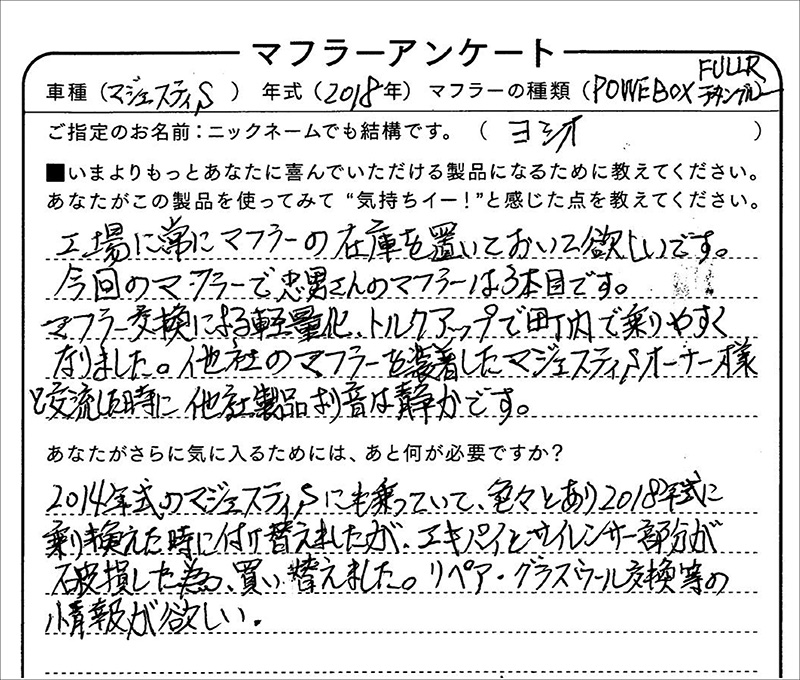 マフラーアンケート
車種（マジェスティS） 年式（2018年） マフラーの種類（POWEBOX FULLR チタンブルー
ご指定のお名前：ニックネームでも結構です。（ヨシオ）
■いまよりもっとあなたに喜んでいただける製品になるために教えてください。
あなたがこの製品を使ってみて“気持ちイー！”と感じた点を教えてください。
工場に常にマフラーの在庫を置いておいて欲しいです。
今回のマフラーで忠男さんのマフラーは3本目です。
マフラー交換による軽量化、トルクアップで町内で乗りやすく
なりました。他社のマフラーを装着したマジェスティSオーナー様
と交流した時に他社製品より音は静かです。
あなたがさらに気に入るためには、あと何が必要ですか？
2014年式のマジェスティSにも乗っていて、色々とあり2018年式に
乗り換えた時に付け替えましたが、エキパイとサイレンサー部分が
破損した為、買い替えました。リペア・グラスウール交換等の
情報が欲しい.